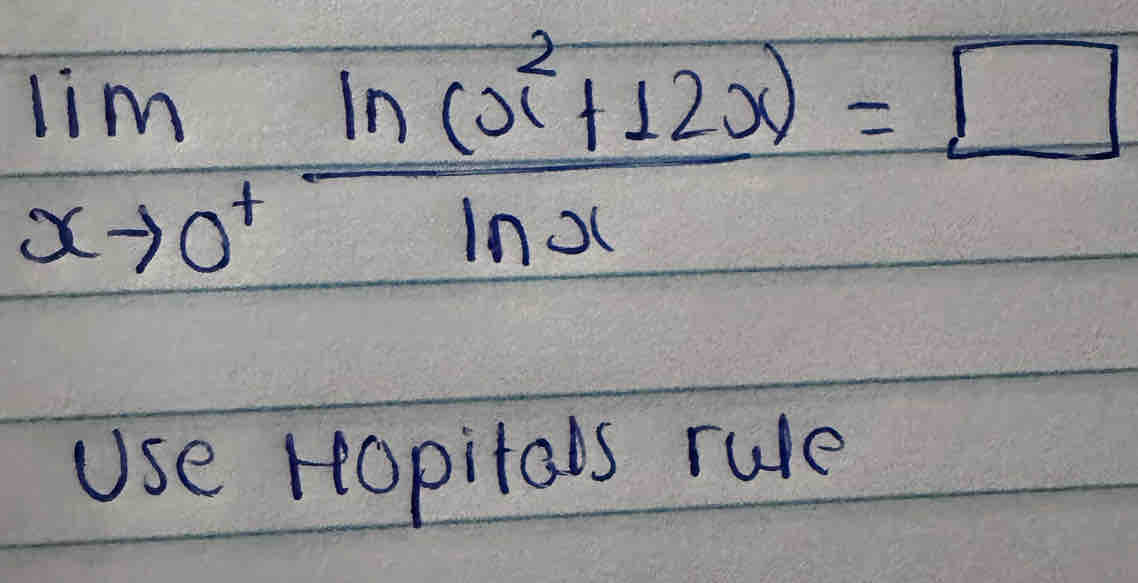 lim ln(x²+12x) = □
x→0⁺ ln x
Use Hopitals rule